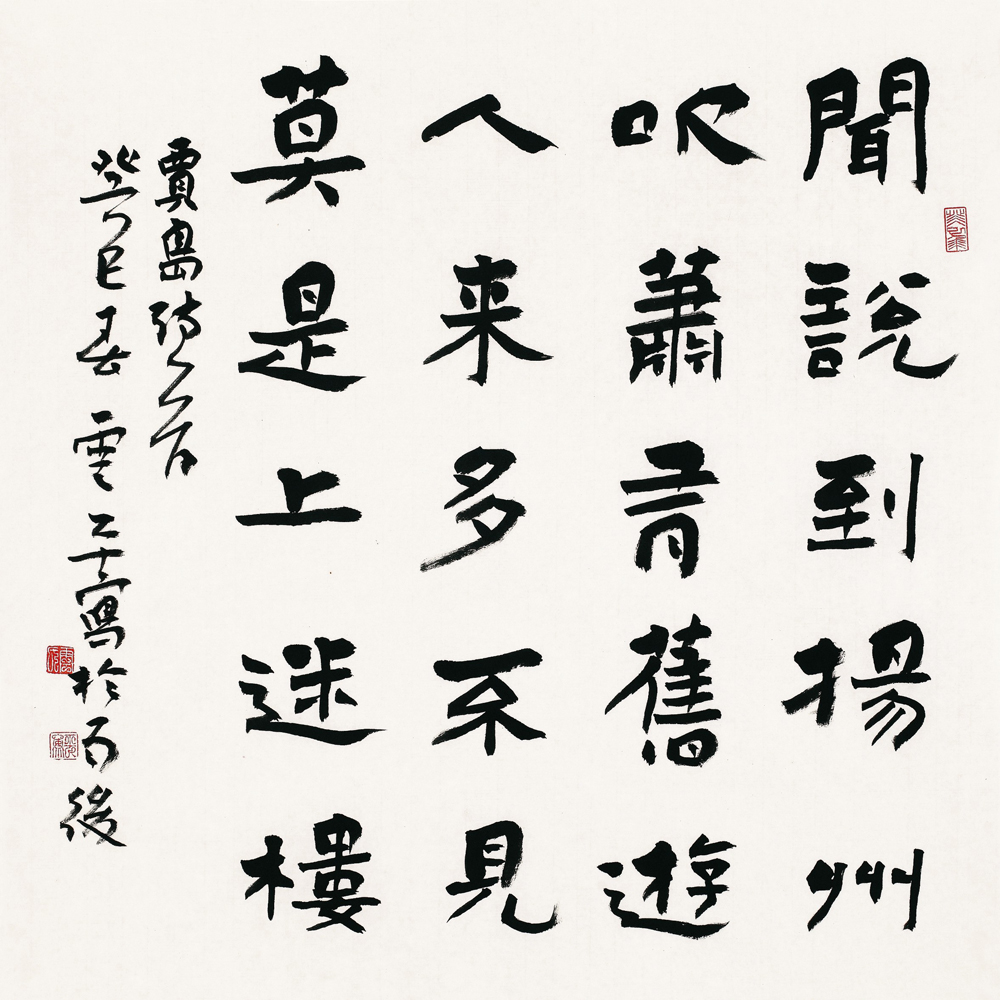 聞說到揚州
吹蕭有舊遊
人来多不見
莫是上迷樓
賈島詩一首
癸巳春雲寫於後